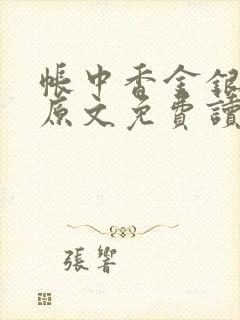 帳中香金銀
原文免費讀
張響